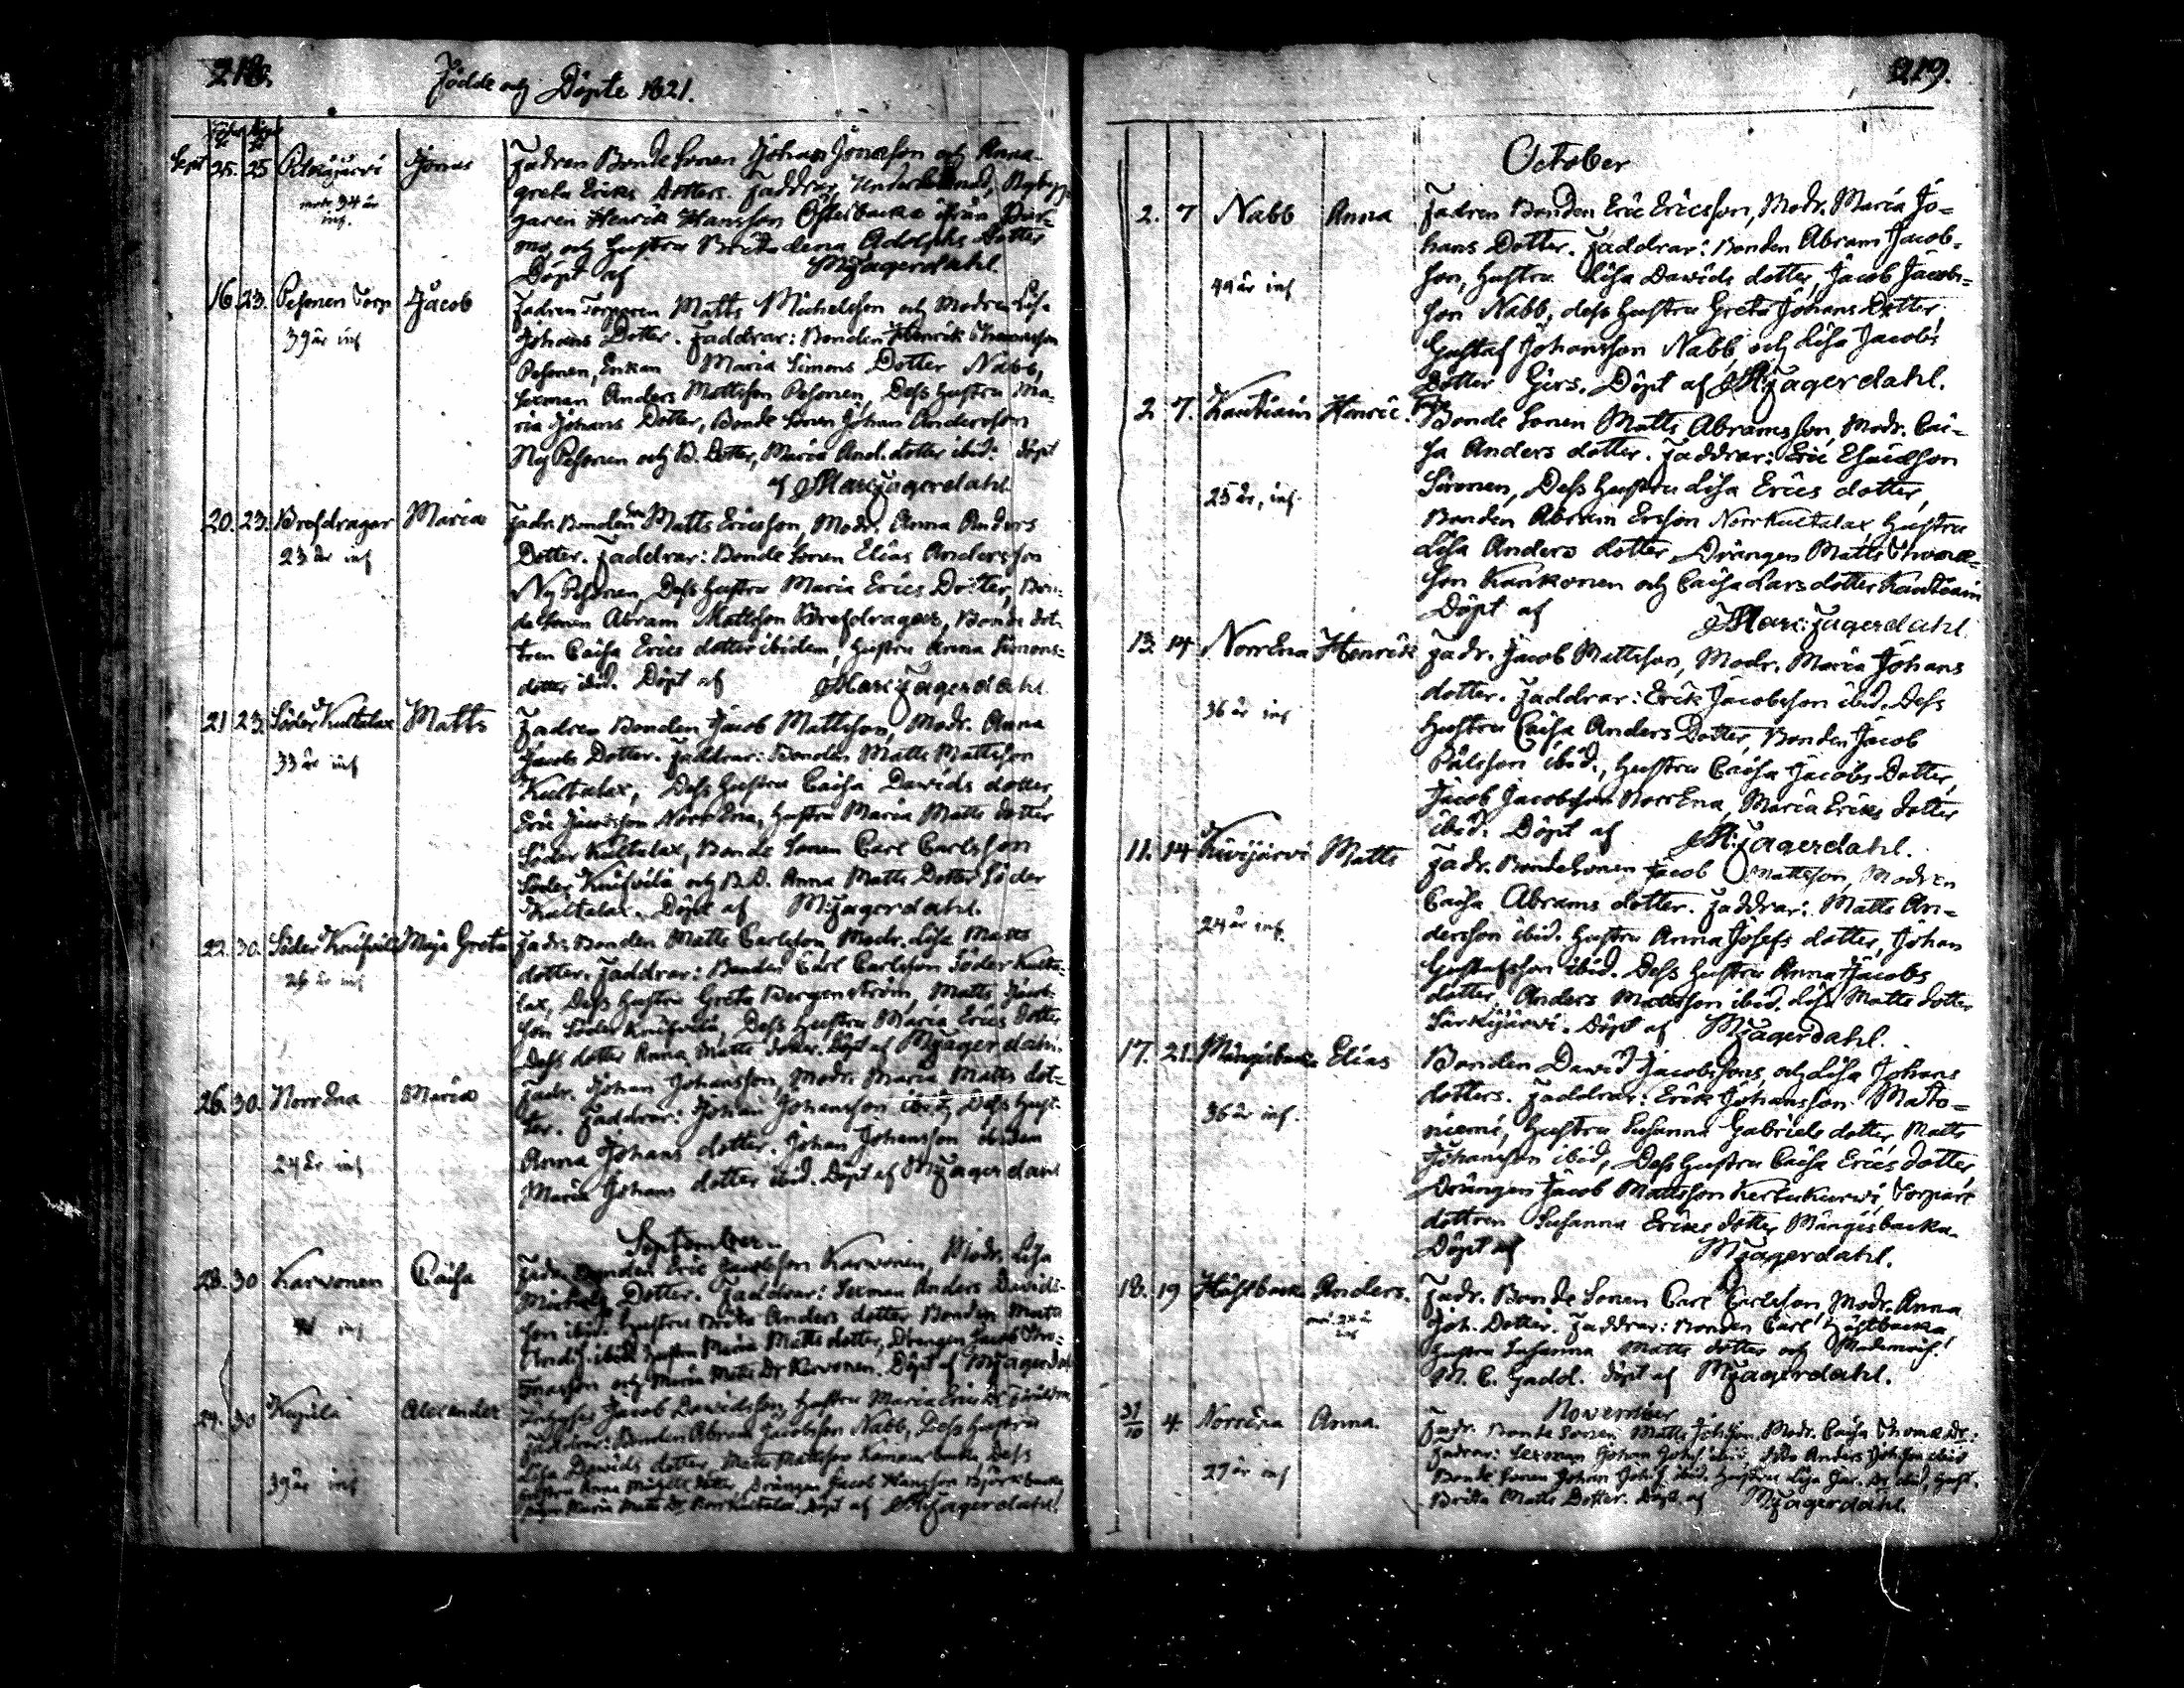 218.
Födde och Döpte 1821.
Sept 25. 25 Pitkäjärvi Jonas Fadren Bonde Sonen Johan Jonæson och Anna
modr 34 år inf.
greta Erics Dotters. Faddrar, Nybyg-
garen Henrik Hansson Österbacka ifrån
och hustru Brita Lena Adolphs Dotter
Döpt af MFagerdahl.
16 23. Pesonen Torp Jacob Fadren Torparen Matts Michelsson och Modren Lisa
39 år inf
Johans Dotter. Faddrar: Bonden Henrik Thomasson
Pesonen, Enkan Maria Simons Dotter Nabb,
Sexman Anders Mattsson Pesonen, Dess hustru Ma-
ria Johans Dotter, Bonde Sonen Johan Andersson
Ny Pesonen och B. Dotter, Maria And. dotter ibid: Döpt
af Marc: Fagerdahl
20. 23. Brefdragar Maria Fadr. Bonden Matts Ericsson, Modr. Anna Anders
23 år inf
Dotter. Faddrar: Bonde Sonen Elias Andersson
Ny Pesonen, Dess hustru Maria Erics Dotter, Bon-
de Sonen Abram Mattsson Brefdragar, Bonde dot-
tren Caisa Erics dotter ibidem, hustru Anna Simons-
dotter ibid. Döpt af Marc Fagerdahl
21 23. Söder Kultalax Matts Fadren Bonden Jacob Mattsson, Modr. Anna
33 år inf
Jacobs Dotter. Faddrar: Bonden Matts Mattsson
Kultalax, Dess hustru Caisa Davids dotter,
Eric Jacobsson Norr Ena, hustru Maria Matts dotter
Söder Kultalax, Bonde Sonen Carl Carlsson
Söder Knifvilä och B.D. Anna Matts Dotter Söder
Kultalax. Döpt af M: Fagerdahl.
22. 30. Söder Knifvilä Maja Greta Fadr. Bonden Matts Carlsson, Modr. Lisa Matts
26 år inf
dotter. Faddrar: Bonden Carl Carlsson Söder Kulta-
lax, Dess hustru Greta Bergenström, Matts Jacob-
son Söder Knifvilä, Dess hustru Maria Erics dotter
Dess dotter Anna Matts dotter. Döpt af MFagerdahl.
26. 30. Norr Ena Maria Fadr. Johan Johansson, Modr. Maria Matts dot-
24 år inf
ter. Faddrar: Johan Johansson ibid, Dess hust.
Anna Johans dotter. Johan Johansson ibidem
Maria Johans dotter ibid. Döpt af MFagerdahl
September
28. 30 Karvonen Caisa Fadr. Bonden Eric Karvonen, Modr. Lisa
inf
Michels Dotter. Faddrar: Sexman Anders Davids-
son ibid. hustru Brita Anders dotter, Bonden Matts
ibid. hustru Maria Matts dotter, Drängen Jacob
och Maria Matts Dr Karvonen. Döpt af MFagerdahl
29. 30 Kujula Alexander Jacob Davidsson, hustru Maria Erics Dr
39 år inf
Faddrar: Bonden Abram Jacobsson Nabb, Dess hustru
Lisa Davids dotter, Matts Mattsson backa, Dess
hustru Anna Michels dotter, Drängen Jacob Hansson Björnbacka
Maria Matts Dr Norr Kultala. Döpt af MFagerdahl.
219.
October
2. 7 Nabb Anna Fadren Bonden Eric Ericsson, Modr. Maria Jo-
44 år inf
hans Dotter. Faddrar: Bonden Abram Jacob-
son, hustru Lisa Davids dotter, Jacob Jacobs-
son Nabb, dess hustru Greta Johans Dotter,
Gustaf Johansson Nabb och Lisa Jacobs
Dotter Girs. Döpt af M: Fagerdahl.
2. 7. Kautiain Henric. Bonde Sonen Matts Abramsson, Modr. Cai-
25 år, inf
sa Anders dotter. Faddrar: Eric Esaidsson
Sironen, Dess hustru Lisa Erics dotter,
Bonden Abram Ersson Norrkultalax, hustru
Lisa Anders dotter, Drängen Matts Thomæ-
son Karkonen och Caisa Lars dotter Kautiain
Döpt af Marc: Fagerdahl
13. 14 Norr Ena Henrik Fadr. Jacob Mattsson, Modr. Maria Johans
36 år inf
dotter. Faddrar: Erik Jacobsson ibid. Dess
hustru Caisa Anders Dotter, Bonden Jacob
Pålsson ibid., hustru Caisa Jacobs Dotter,
Jacob Jacobsson Norr Ena, Maria Erics dotter
ibid. Döpt af M: Fagerdahl.
11. 14 Kivijärvi Matts Fadr. Bonde Sonen Jacob Mattsson, Modren
24 år inf.
Caisa Abrams dotter. Faddrar: Matts An-
dersson ibid. hustru Anna Josefs dotter, Johan
Gustafsson ibid. Dess hustru Anna Jacobs
dotter. Anders Mattsson ibid. Lisa Matts dotter
Särkijärvi. Döpt af MFagerdahl.
17. 21. Mängisbacka Elias Bonden David Jacobssons, och Lisa Johans
36 år inf.
dotters. Faddrar: Erik Johansson Mato-
niemi, hustru Susanna Gabriels dotter, Matts
Johansson ibid, Dess hustru Caisa Erics dotter,
Drängen Jacob Mattsson Kertukurwi, Torpare
dottren Susanna Erics dotter Mängisbacka.
Döpt af MFagerdahl.
18. 19 Högbacka Anders. Fadr. Bonde Sonen Carl Carlsson, Modr. Anna
inf
Joh. Dotter. Faddrar: Bonden Carl Högbacka,
hustru Susanna Matts dotter och Mademois.
M. C. Gadd. Döpt af MFagerdahl.
November
31/10 4. Norr Ena Anna. Fadr. Bonde Sonen Matts Johsson, Modr. Caisa Thomæ Dr.:
27 år inf
Fadrar: Sexman Johan Johss ibid, Anders Johsson ibid
Bonde Sonen Johan Johss. ibid. hustru Lisa Dr ibid, hust.
Brita Matts Dotter. Döpt af MFagerdahl.